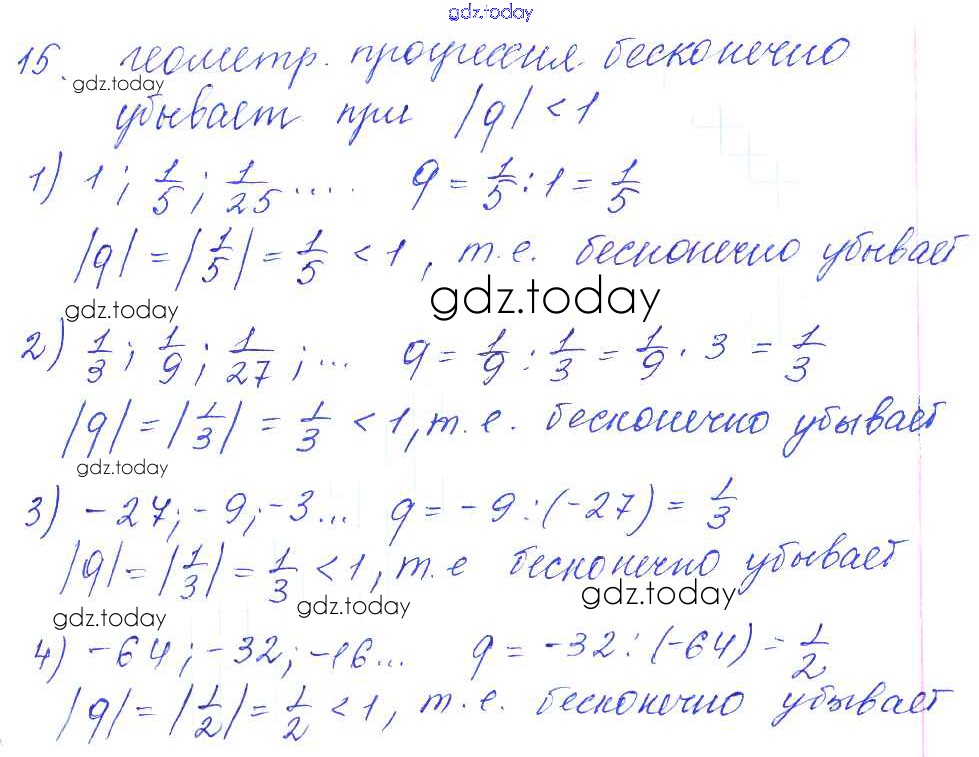 gdz.today
15. геометр. прогрессия бесконечно
gdz.today
убывает при |q| < 1
1) 1; 1/5; 1/25 .... q = 1/5 : 1 = 1/5
|q| = |1/5| = 1/5 < 1, т.е. бесконечно убывает
gdz.today
gdz.today
2) 1/3; 1/9; 1/27; ... q = 1/9 : 1/3 = 1/9 · 3 = 1/3
|q| = |1/3| = 1/3 < 1, т.е. бесконечно убывает
gdz.today
3) -27; -9; -3... q = -9 : (-27) = 1/3
|q| = |1/3| = 1/3 < 1, т.е бесконечно убывает
gdz.today
gdz.today
gdz.today
4) -64; -32; -16... q = -32 : (-64) = 1/2
|q| = |1/2| = 1/2 < 1, т.е. бесконечно убывает